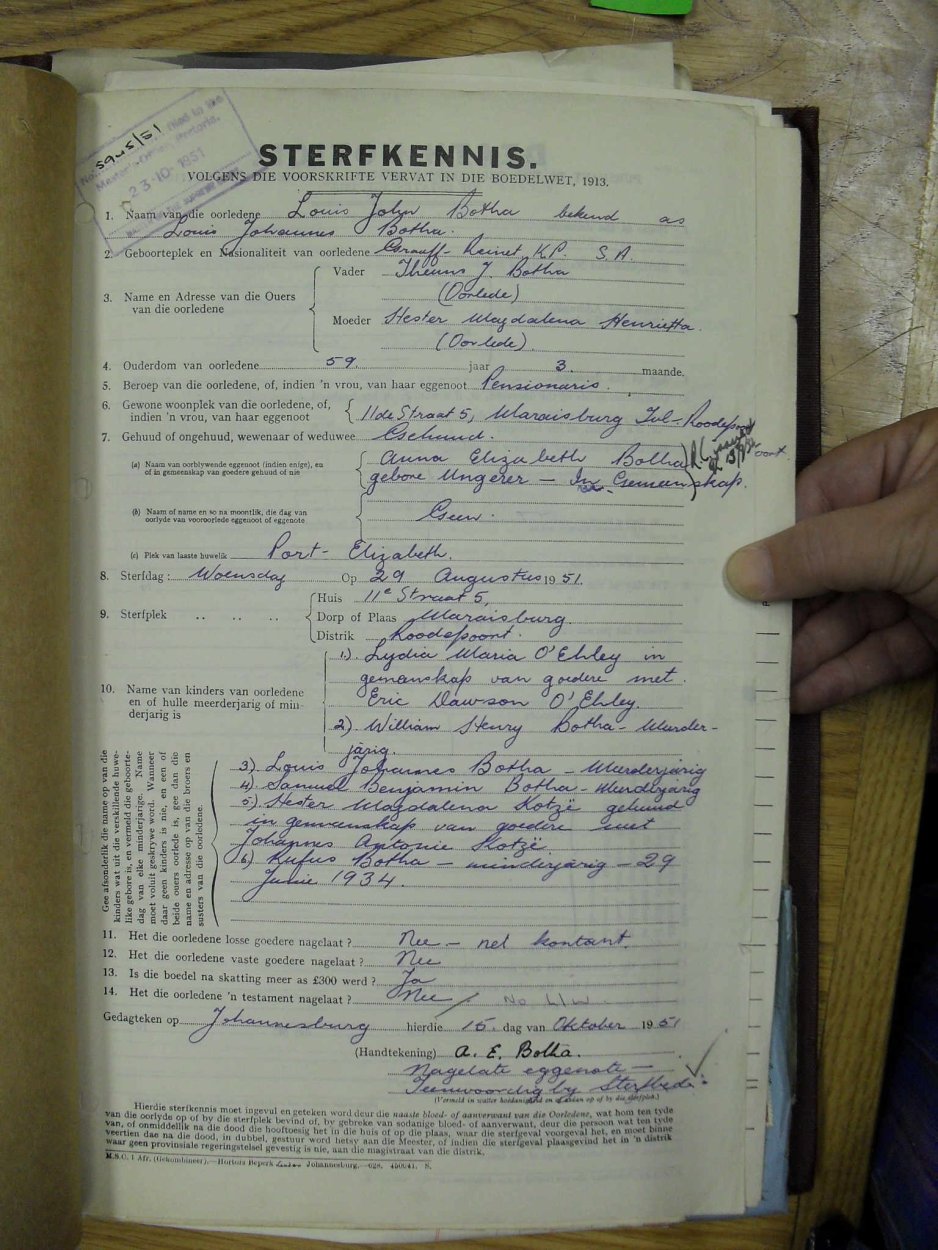 5945/51
filed in the
Master's Office, Pretoria.
23·10·1951
STERFKENNIS.
VOLGENS DIE VOORSKRIFTE VERVAT IN DIE BOEDELWET, 1913.
1. Naam van die oorledene Louis John Botha bekend as
Louis Johannes Botha.
2. Geboorteplek en Nasionaliteit van oorledene Graaff-Reinet K.P. S.A.
3. Name en Adresse van die Ouers van die oorledene
Vader Theuns J. Botha
(Oorlede)
Moeder Hester Magdalena Henrietta
(Oorlede).
4. Ouderdom van oorledene 59. jaar 3. maande.
5. Beroep van die oorledene, of, indien 'n vrou, van haar eggenoot Pensionaris.
6. Gewone woonplek van die oorledene, of,
indien 'n vrou, van haar eggenoot
11de Straat 5, Maraisburg Tvl-Roodepoort
7. Gehuud of ongehuud, wewenaar of weduwee Gehuud.
(a) Naam van oorblywende eggenoot (indien enige), en
of in gemeenskap van goedere gehuud of nie
Anna Elizabeth Botha
gebore Ungerer – In Gemeenskap.
(b) Naam of name en so na moontlik, die dag van
oorlyde van vooroorlede eggenoot of eggenote
Geen.
(c) Plek van laaste huwelik Port-Elizabeth.
8. Sterfdag: Woensdag Op 29 Augustus 1951.
9. Sterfplek .. .. ..
Huis 11e Straat 5,
Dorp of Plaas Maraisburg
Distrik Roodepoort.
10. Name van kinders van oorledene
en of hulle meerderjarig of min-
derjarig is
1). Lydia Maria O'Ehley in
gemenskap van goedere met.
Eric Dawson O'Ehley.
2). William Henry Botha – Meerder-
jarig.
3). Louis Johannes Botha – Meerderjarig
4). Samuel Benjamin Botha – Meerderjarig
5). Hester Magdalena Kotzë gehuud
in gemenskap van goedere met
Johannes Antonie Kotzë.
6). Rufus Botha – minderjarig – 29
Junie 1934.
Gee afsonderlik die name op van die
kinders wat uit die verskillende huwe-
like gebore is, en vermeld die geboorte-
dag van elke minderjarige. Name
moet voluit geskrywe word. Wanneer
daar geen kinders is nie, en een of
beide ouers oorlede is, gee dan die
name en adresse op van die broers en
susters van die oorledene.
11. Het die oorledene losse goedere nagelaat? Nee – net kontant.
12. Het die oorledene vaste goedere nagelaat? Nee
13. Is die boedel na skatting meer as £300 werd? Ja
14. Het die oorledene 'n testament nagelaat? Nee / No L/w.
Gedagteken op Johannesburg hierdie 15. dag van Oktober 1951
(Handtekening) A. E. Botha.
Nagelate eggenote –
Teenwoordig by Sterfbed.
(Vermeld in watter hoedanigheid en of op of by die sterfplek.)
Hierdie sterfkennis moet ingevul en geteken word deur die naaste bloed- of aanverwant van die Oorledene, wat hom ten tyde
van die oorlyde op of by die sterfplek bevind of, by gebreke van sodanige bloed- of aanverwant, deur die persoon wat ten tyde
van, of onmiddellik na die dood die hooftoesig het in die huis of op die plaas, waar die sterfgeval voorgeval het, en moet binne
veertien dae na die dood, in dubbel, gestuur word hetsy aan die Meester, of indien die sterfgeval plaasgevind het in 'n distrik
waar geen provinsiale regeringstelsel gevestig is nie, aan die magistraat van die distrik.
M.S.C. 1 Afr. (Gekombineer).—Hortors Beperk Johannesburg.—628. 450941. S.